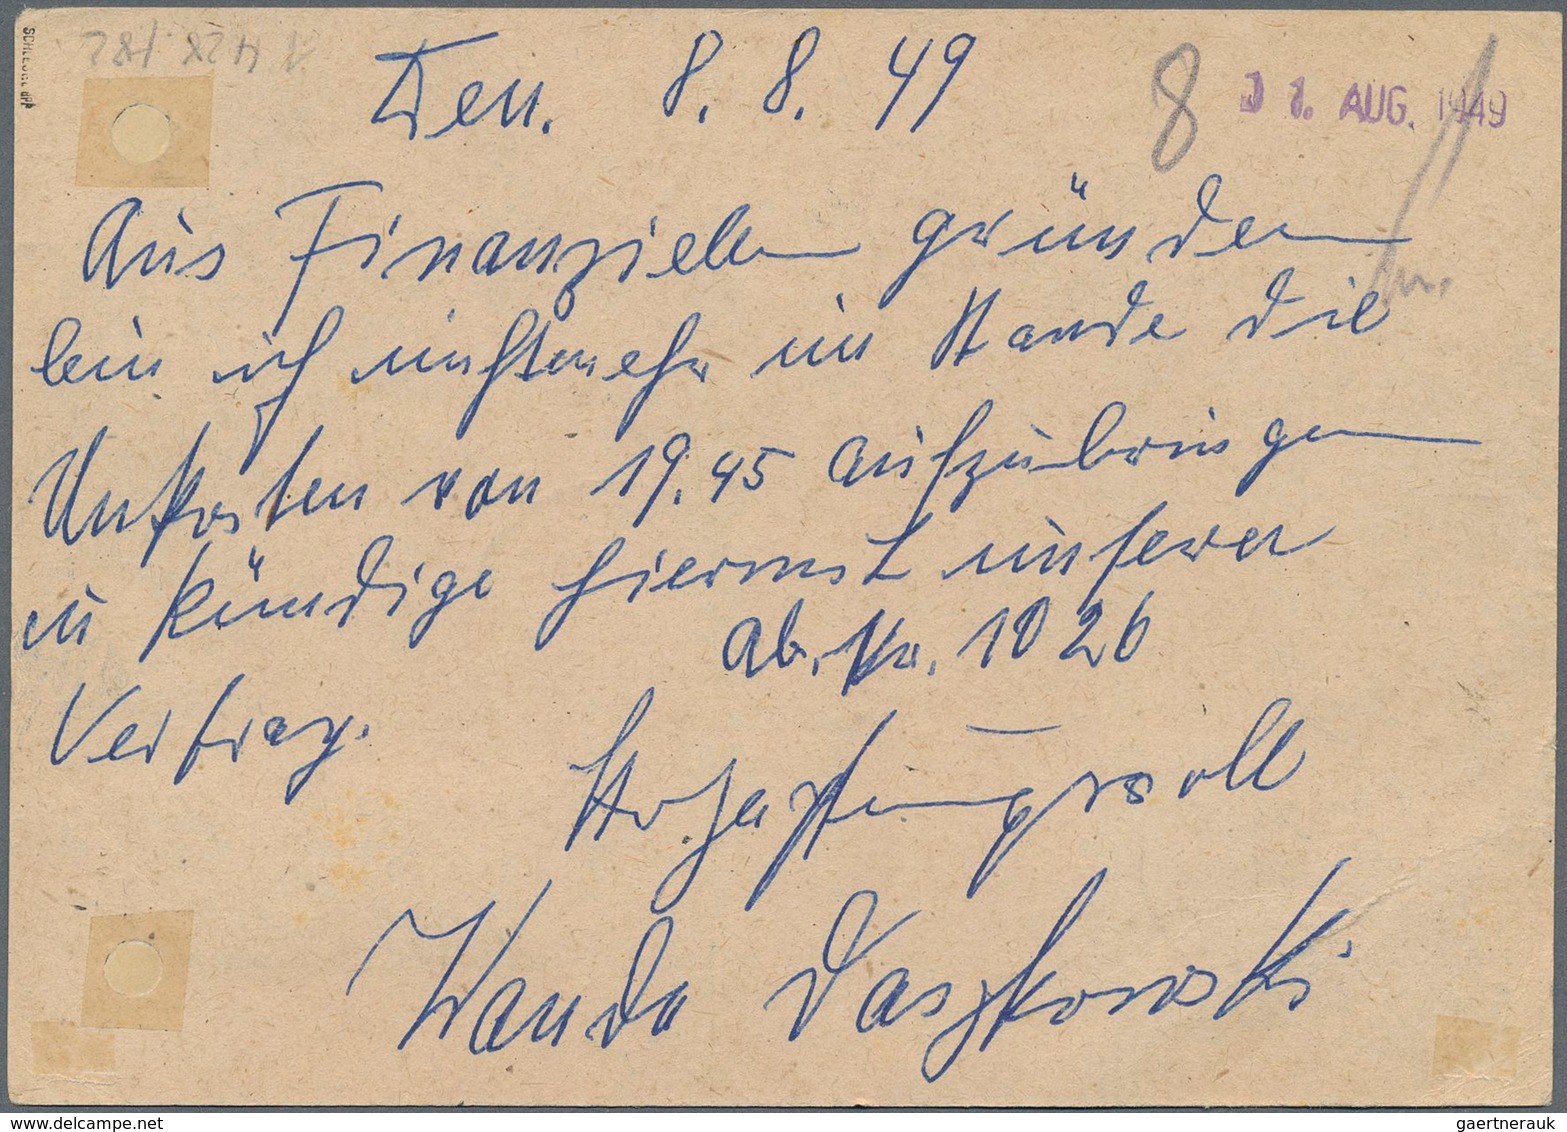 Den. 8. 8. 49
8
1. AUG. 1949
Aus Finanziellen gründen
bin ich nichtmehr im Stande die
Unkosten von 19.45 aufzubringen
u kündige hiermit unseren
Ab. Nr. 1026
Vertrag.
Hochachtungsvoll
Wanda Daszkowski
gaertnerauk